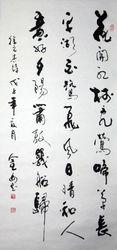 花開紅樹亂鶯啼草長
平湖白鷺飛風日晴和人
意好夕陽簫鼓幾船歸
徐元杰詩 戊子年